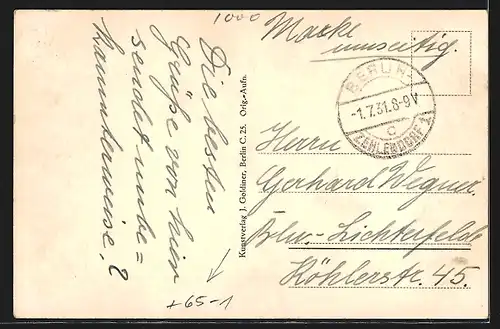 1000
Marke
umseitig.
BERLIN-
-1.7.31.8-9V
c
ZEHLENDORF 1
Die besten
Grüße von hier
sendet unbe=
kannterweise, ?
Kunstverlag J. Goldiner, Berlin C. 25. Orig.-Aufn.
Herrn
Gerhard Wegner
Bln.-Lichterfelde
Köhlerstr. 45.
+65-1